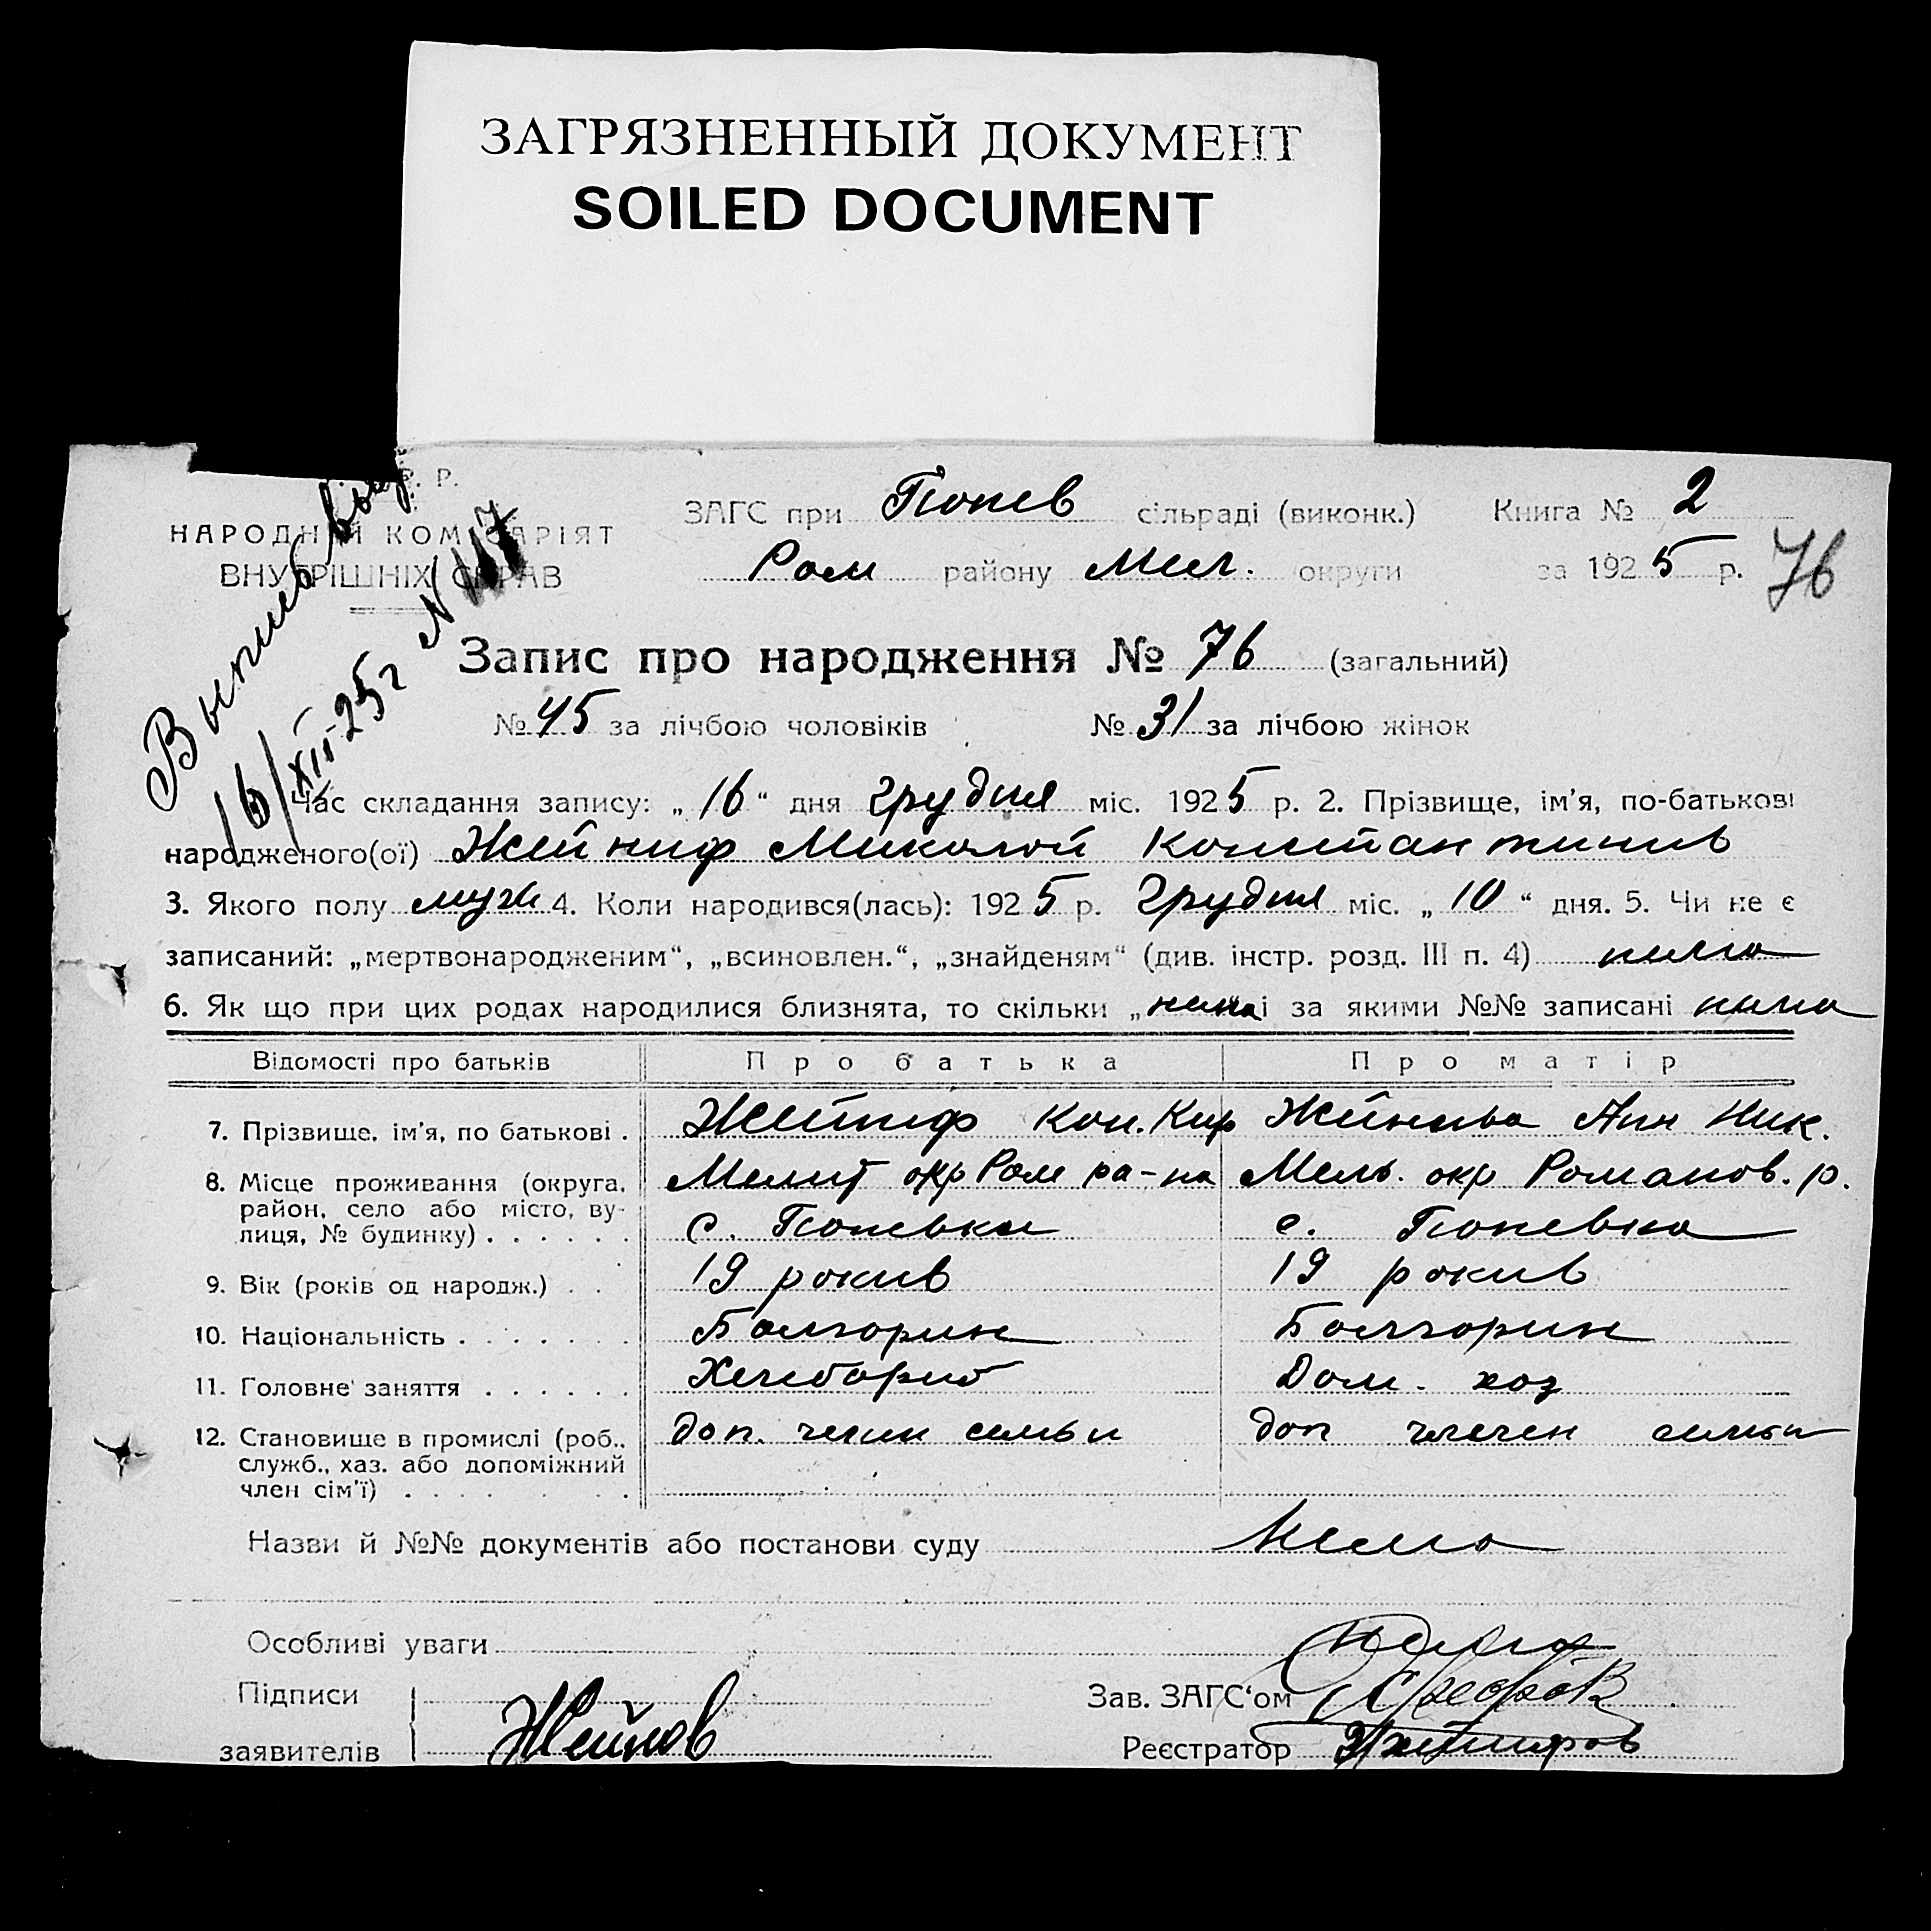 ЗАГРЯЗНЕННЫЙ ДОКУМЕНТ
SOILED DOCUMENT
Р. Р.
НАРОДНІЙ КОМІСАРІЯТ
ВНУТРІШНІХ СПРАВ
16/XII-25г N 117
ЗАГС при сільраді (виконк.) Книга № 2
Ром району Мел. округи за 1925 р.
76
Запис про народження № 76 (загальний)
№ 45 за лічбою чоловіків № 31 за лічбою жінок
Час складання запису: „16“ дня грудня міс. 1925 р. 2. Прізвище, ім’я, по-батькові
народженого(ої) Николой
3. Якого полу муж 4. Коли народився(лась): 1925 р. грудня міс. „10“ дня. 5. Чи не є
записаний: „мертвонародженим“, „всиновлен.“, „знайденям“ (див. інстр. розд. III п. 4) нима
6. Як що при цих родах народилися близнята, то скільки „нима і за якими №№ записані нима
Відомості про батьків Про батька Про матір
7. Прізвище, ім’я, по батькові . Кон. Кир Анн Ник.
8. Місце проживання (округа, Мелит окр Ром ра-на Мель. окр Романов. р.
район, село або місто, ву-
лиця, № будинку) . . . . . . с. с.
9. Вік (років од народж.) . . 19 рокив 19 рокив
10. Національність . . . . . . Болгорин Болгорин
11. Головне заняття . . . . . . Хлебориб Дом. хоз
12. Становище в промислі (роб., доп. член семьи доп член семьи
служб., хаз. або допоміжний
член сім’ї) . . . . . .
Назви й №№ документів або постанови суду Нема
Особливі уваги
Підписи Зав. ЗАГС‘ом
заявителів Жейнов Реєстратор